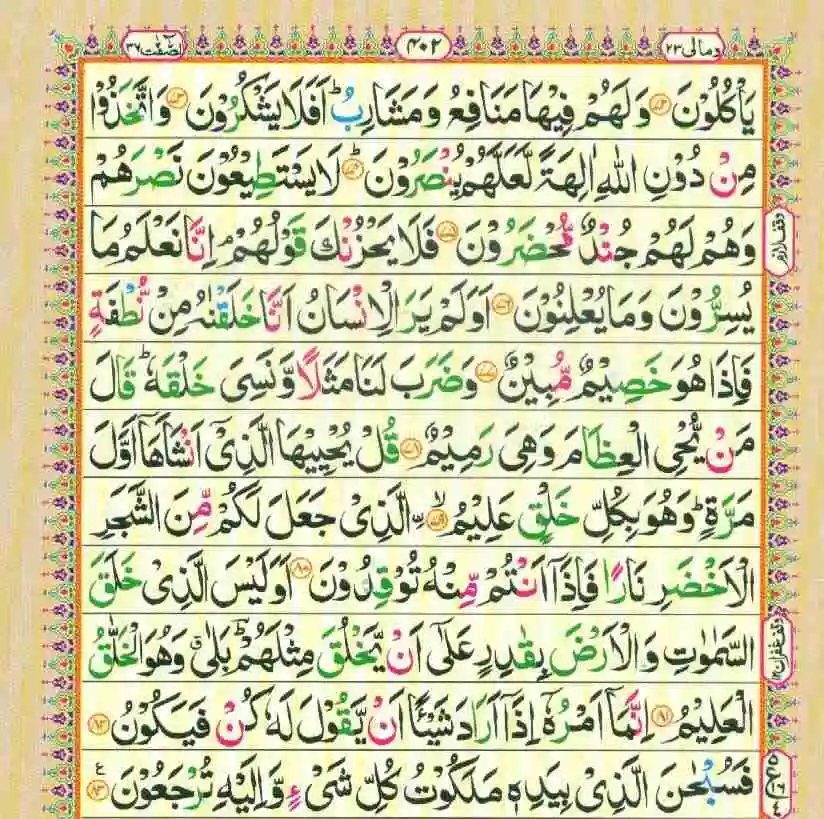 ومالی ٢٣
٤٠٢
یَاْكُلُوْنَ ﴿٧٢﴾ وَلَهُمْ فِیْهَا مَنَافِعُ وَمَشَارِبُ ؕ اَفَلَا یَشْكُرُوْنَ ﴿٧٣﴾ وَاتَّخَذُوْا
مِنْ دُوْنِ اللّٰهِ اٰلِهَةً لَّعَلَّهُمْ یُنْصَرُوْنَ ﴿٧٤﴾ ؕ لَا یَسْتَطِیْعُوْنَ نَصْرَهُمْ
وَهُمْ لَهُمْ جُنْدٌ مُّحْضَرُوْنَ ﴿٧٥﴾ فَلَا یَحْزُنْكَ قَوْلُهُمْ ۘ اِنَّا نَعْلَمُ مَا
وقف لازم
یُسِرُّوْنَ وَمَا یُعْلِنُوْنَ ﴿٧٦﴾ اَوَلَمْ یَرَ الْاِنْسَانُ اَنَّا خَلَقْنٰهُ مِنْ نُّطْفَةٍ
فَاِذَا هُوَ خَصِیْمٌ مُّبِیْنٌ ﴿٧٧﴾ وَضَرَبَ لَنَا مَثَلًا وَّنَسِیَ خَلْقَهٗ ؕ قَالَ
مَنْ یُّحْیِ الْعِظَامَ وَهِیَ رَمِیْمٌ ﴿٧٨﴾ قُلْ یُحْیِیْهَا الَّذِیْۤ اَنْشَاَهَاۤ اَوَّلَ
مَرَّةٍ ؕ وَهُوَ بِكُلِّ خَلْقٍ عَلِیْمُ ﴿٧٩﴾ ۙ الَّذِیْ جَعَلَ لَكُمْ مِّنَ الشَّجَرِ
الْاَخْضَرِ نَارًا فَاِذَاۤ اَنْتُمْ مِّنْهُ تُوْقِدُوْنَ ﴿٨٠﴾ اَوَلَیْسَ الَّذِیْ خَلَقَ
السَّمٰوٰتِ وَالْاَرْضَ بِقٰدِرٍ عَلٰۤی اَنْ یَّخْلُقَ مِثْلَهُمْ ؕ بَلٰی ۗ وَهُوَ الْخَلّٰقُ
وقف غفران
الْعَلِیْمُ ﴿٨١﴾ اِنَّمَاۤ اَمْرُهٗۤ اِذَاۤ اَرَادَ شَیْئًا اَنْ یَّقُوْلَ لَهٗ كُنْ فَیَكُوْنُ ﴿٨٢﴾
فَسُبْحٰنَ الَّذِیْ بِیَدِهٖ مَلَكُوْتُ كُلِّ شَیْءٍ وَّاِلَیْهِ تُرْجَعُوْنَ ﴿٨٣﴾ ع